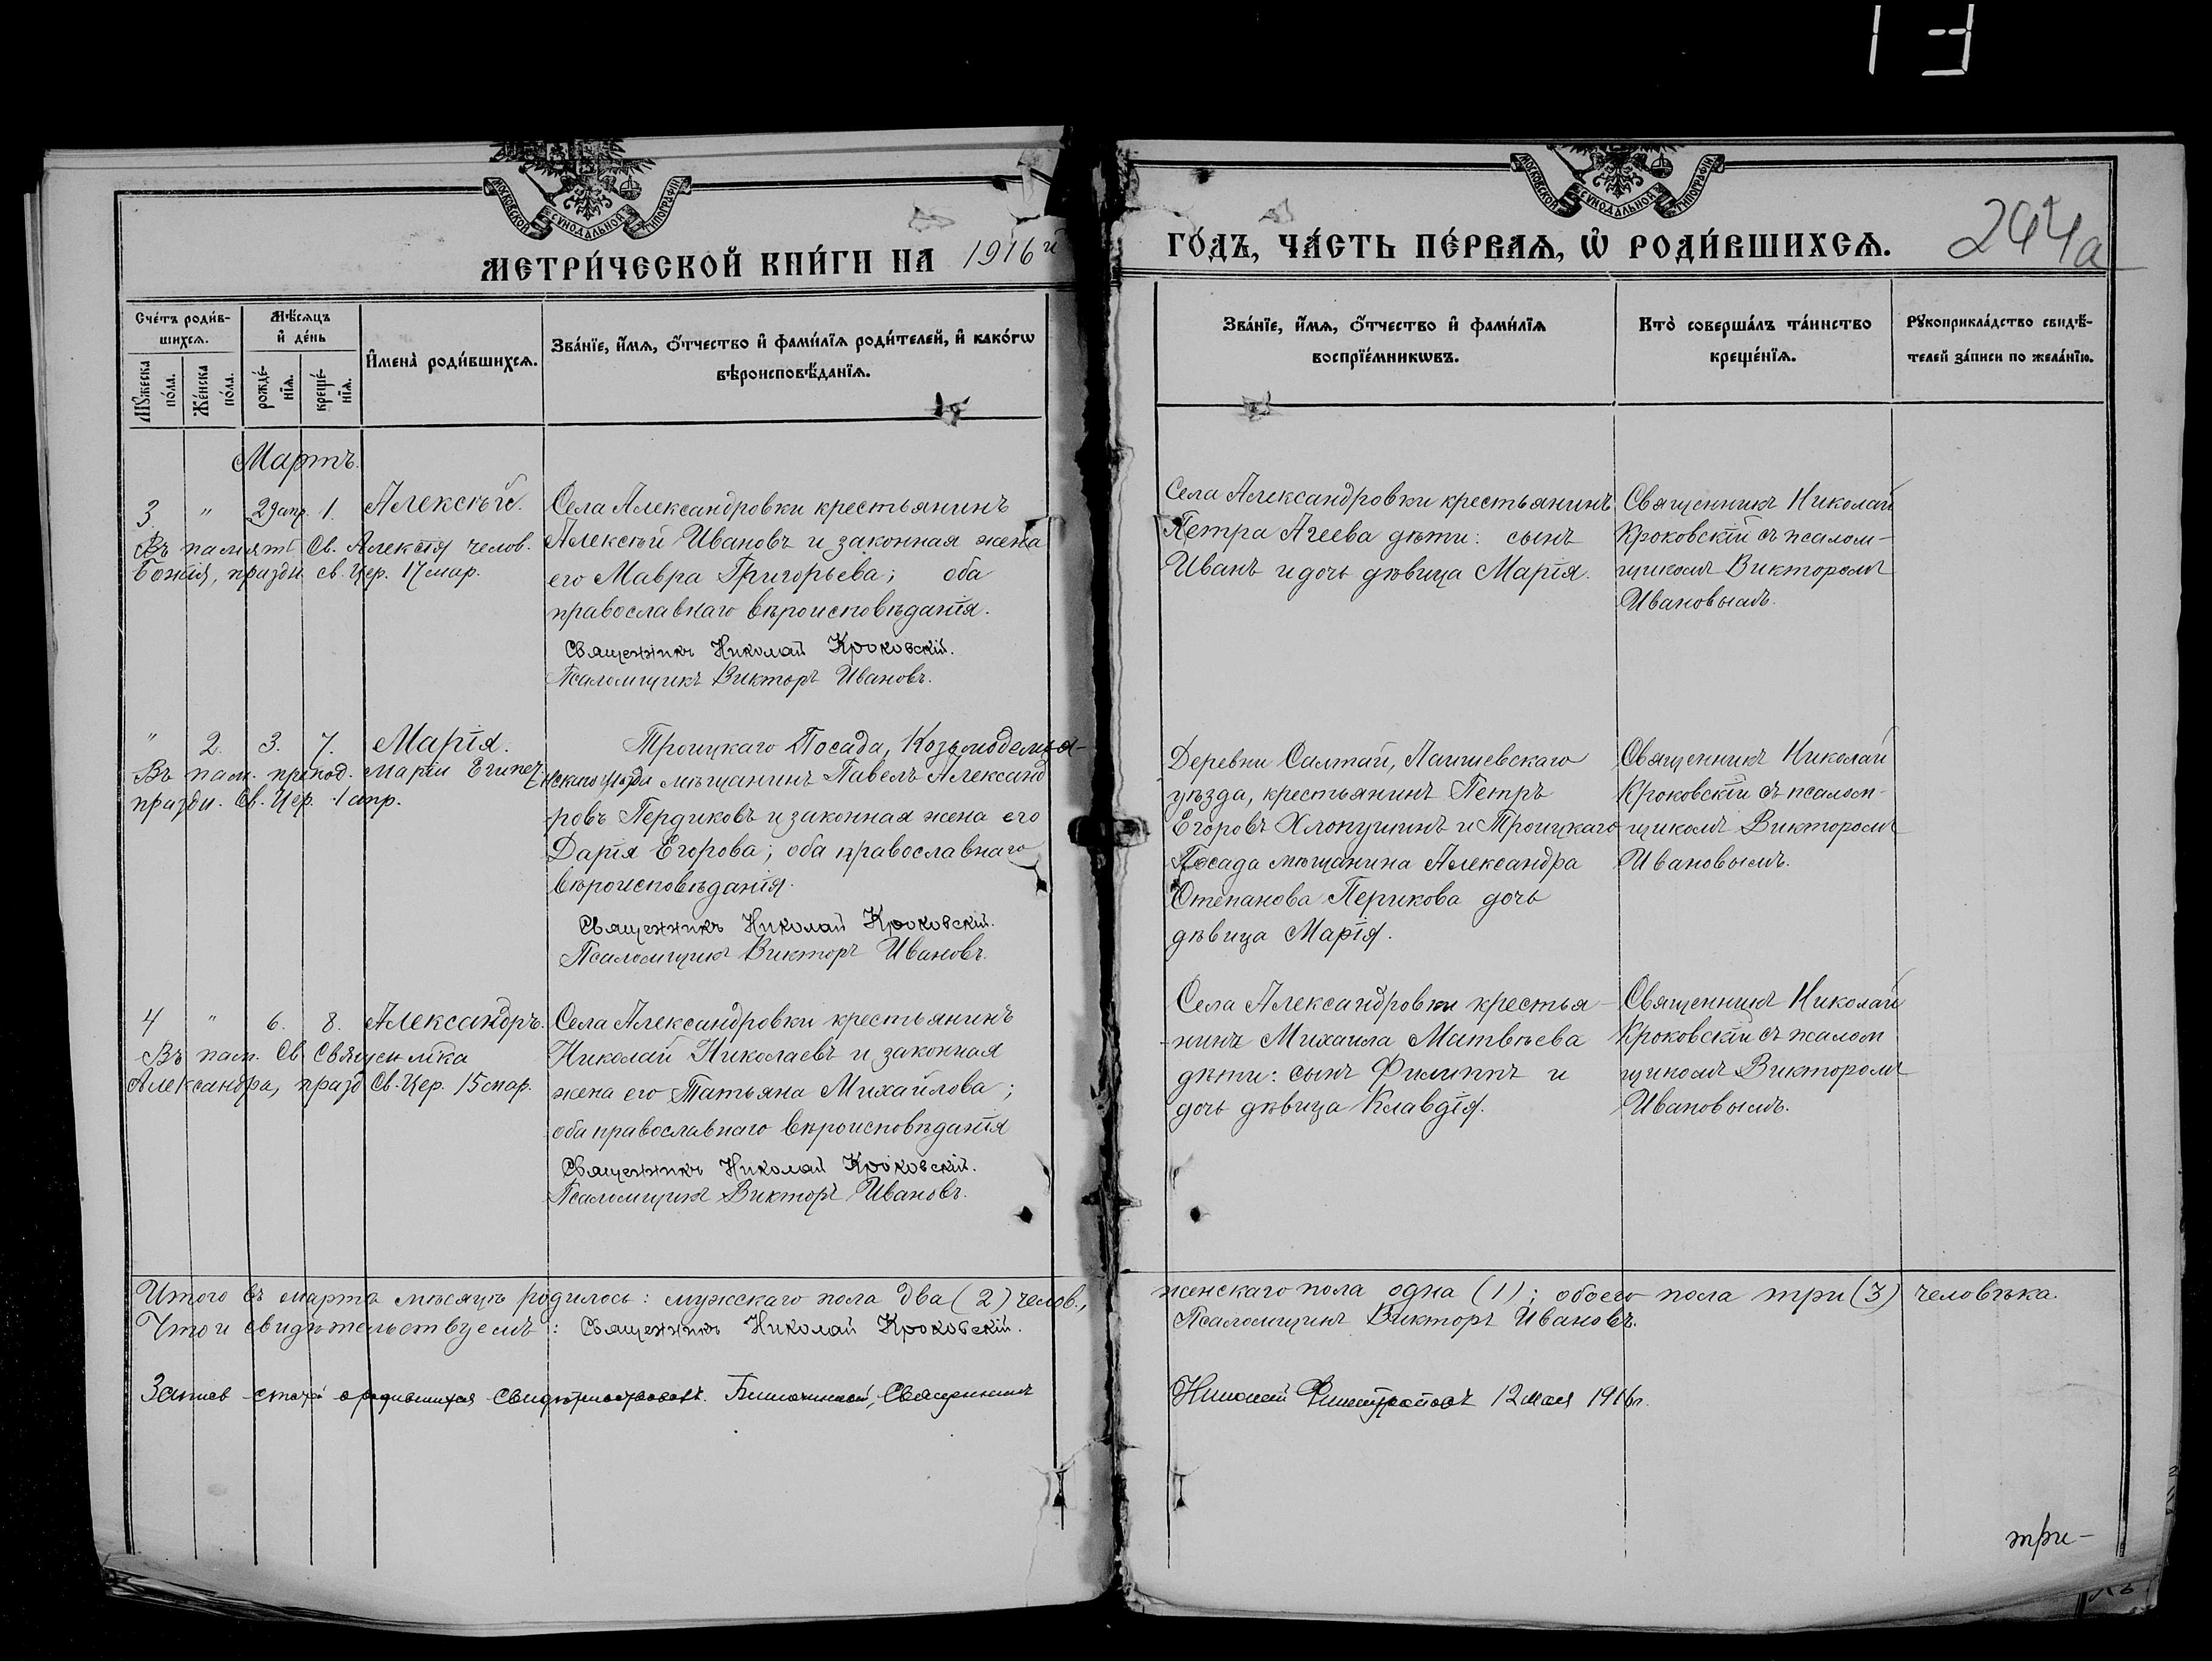 МОСКОВСКОЙ СѴНОДАЛЬНОЙ ТИПОГРАФІИ
МОСКОВСКОЙ СѴНОДАЛЬНОЙ ТИПОГРАФІИ
МЕТРИ́ЧЕСКОЙ КНИ́ГИ НА 1916й
ГО́ДЪ, ЧА́СТЬ ПЕ́РВАЯ, Ѡ҆ РОДИ́ВШИХСЯ.
244а
Сче́тъ роди́в-
шихся.
Мѣ́сяцъ
и҆ де́нь
Мꙋжеска
по́ла.
Же́нска
по́ла.
рожде́-
нїя.
креще́-
нїя.
И҆мена̀ роди́вшихся.
Зва́нїе, и҆́мя, о҆́тчество и҆ фами́лїя роди́телей, и҆ како́гѡ
вѣроисповѣ́данїя.
Зва́нїе, и҆́мя, о҆́тчество и҆ фами́лїя
воспрїе́мникѡвъ.
Кто̀ соверша́лъ та́инство
креще́нїя.
Рꙋкоприкла́дство свидѣ́-
телей за́писи по жела́нїю.
Мартъ.
3. " 29 1. Алексѣй.
Въ память Св. Алексія челов.
Божія, праздн. св. Цер. 17 мар.
Села Александровки крестьянинъ
Алексѣй Ивановъ и законная жена
его Мавра Григорьева; оба
православнаго вѣроисповѣданія.
Священникъ Николай Кроковскій.
Псаломщикъ Викторъ Ивановъ.
Села Александровки крестьянинъ
Петра Агеева дѣти: сынъ
Иванъ и дочь дѣвица Марія.
Священникъ Николай
Кроковскій съ псалом-
щикомъ Викторомъ
Ивановымъ.
" 2. 3. 7. Марія.
Въ пам. препод. Маріи Египет.
праздн. Св. Цер. 1 апр.
Троицкаго Посада, Козьмодемья-
нскаго уѣзда мѣщанинъ Павелъ Александ
ровъ Пердиковъ и законная жена его
Дарія Егорова; оба православнаго
вѣроисповѣданія.
Священникъ Николай Кроковскій.
Псаломщикъ Викторъ Ивановъ.
Деревни Салтай, Лаишевскаго
уѣзда, крестьянинъ Петръ
Егоровъ Хлопушинъ и Троицкаго
Посада мѣщанина Александра
Степанова Перикова дочь
дѣвица Марія.
Священникъ Николай
Кроковскій съ псалом-
щикомъ Викторомъ
Ивановымъ.
4 " 6. 8. Александръ.
Въ пам. Св. Священмка
Александра, празд Св. Цер. 15 мар.
Села Александровки крестьянинъ
Николай Николаевъ и законная
жена его Татьяна Михайлова;
оба православнаго вѣроисповѣданія
Священникъ Николай Кроковскій.
Псаломщикъ Викторъ Ивановъ.
Села Александровки крестья-
нинъ Михаила Матвѣева
дѣти: сынъ Филиппъ и
дочь дѣвица Клавдія.
Священникъ Николай
Кроковскій съ псалом
щикомъ Викторомъ
Ивановымъ.
Итого въ марта мѣсяцѣ родилось: мужскаго пола два (2) челов.,
женскаго пола одна (1); обоего пола три (3) человѣка.
Что и свидѣтельствуемъ: Священникъ Николай Кроковскій.
Псаломщикъ Викторъ Ивановъ.
о родившихся Священникъ
Николай 12 мая 1916г.
три-